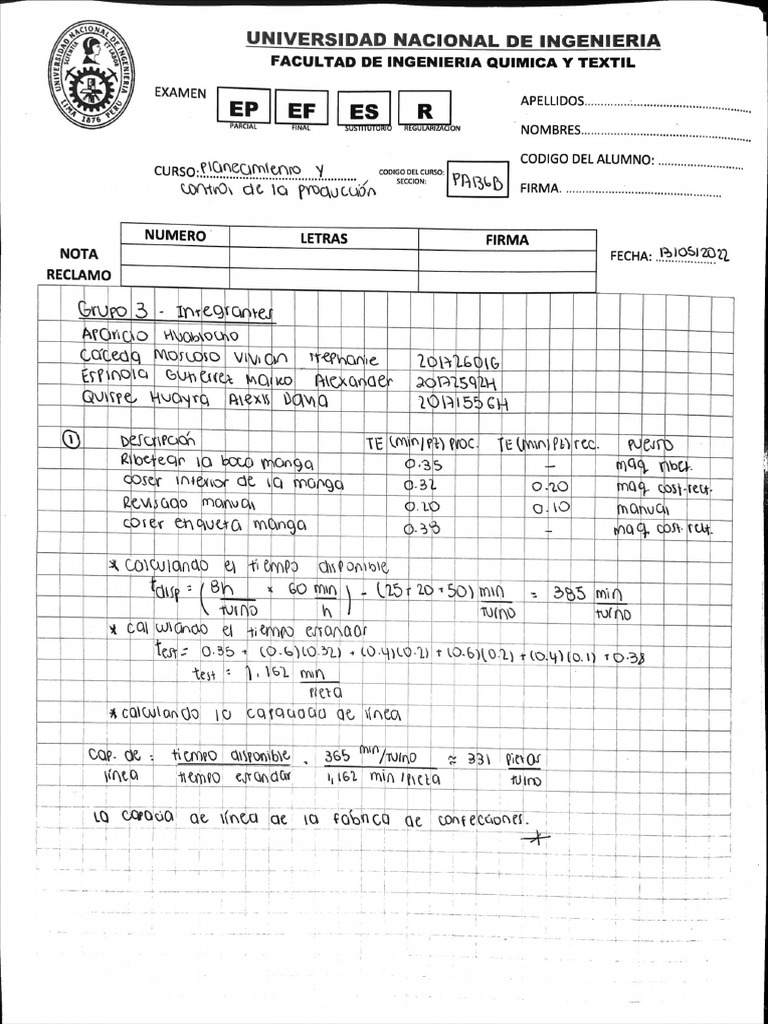 UNIVERSIDAD NACIONAL DE INGENIERIA
FACULTAD DE INGENIERIA QUIMICA Y TEXTIL
UNIVERSIDAD NACIONAL DE INGENIERIA
SCIENTIA ET LABOR
LIMA 1876 PERU
EXAMEN
EP EF ES R
PARCIAL FINAL SUSTITUTORIO REGULARIZACION
APELLIDOS
NOMBRES
CODIGO DEL ALUMNO:
FIRMA.
CURSO: Planeamiento y
control de la producción
CODIGO DEL CURSO:
SECCION:
PA136B
NOTA
RECLAMO
NUMERO LETRAS FIRMA
FECHA: 13/05/2022
Grupo 3 - Integrantes
Aparicio
Caceda Moscoso Vivian Stephanie 20172601G
Espinola Gutierrez Marko Alexander 20172592H
Quispe Huayra Alexis Dana 20171556H
① Descripción TE (min/Pz) proc. TE (min/Pz) rec. Puesto
Ribetear la boca manga 0.35 - maq ribet.
coser interior de la manga 0.32 0.20 maq cost.rect.
Revisado manual 0.20 0.10 manual
coser etiqueta manga 0.38 - maq cost. rect.
* calculando el tiempo disponible
tdisp = (8h/turno × 60 min/h) - (25+20+50) min/turno = 385 min/turno
* calculando el tiempo estandar
test = 0.35 + (0.6)(0.32) + (0.4)(0.2) + (0.6)(0.2) + (0.4)(0.1) + 0.38
test = 1.162 min/pieza
* calculando la capacidad de línea
cap. de línea = tiempo disponible / tiempo estandar = 365 min/turno / 1,162 min/pieza ≈ 331 piezas/turno
La capacia de línea de la fábrica de confecciones.